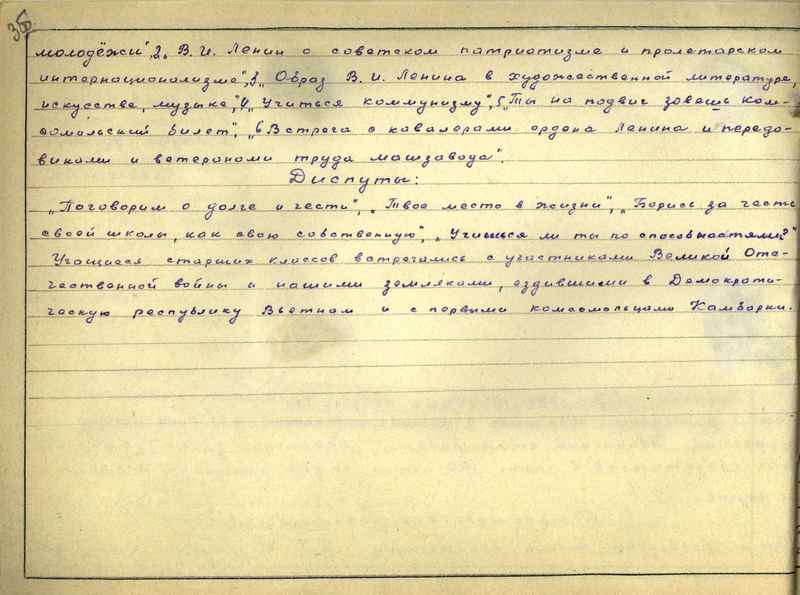 36
молодёжи", 2„ В. И. Ленин о советском патриотизме и пролетарском
интернационализме", 3„ Образ В. И. Ленина в художественной литературе,
искусстве, музыке," 4„ Учиться коммунизму", 5„Ты на подвиг зовешь ком-
сомольский билет", „6 Встреча с кавалерами ордена Ленина и передо-
виками и ветеранами труда машзавода".
Диспуты:
„Поговорим о долге и чести", „Твое место в жизни", „Борись за честь
своей школы, как свою собственную", „Учишься ли ты по способностями?"
Учащиеся старших классов встречались с участниками Великой Оте-
чественной войны и нашими земляками, ездившими в Демократи-
ческую республику Вьетнам и с первыми комсомольцами Камбарки.